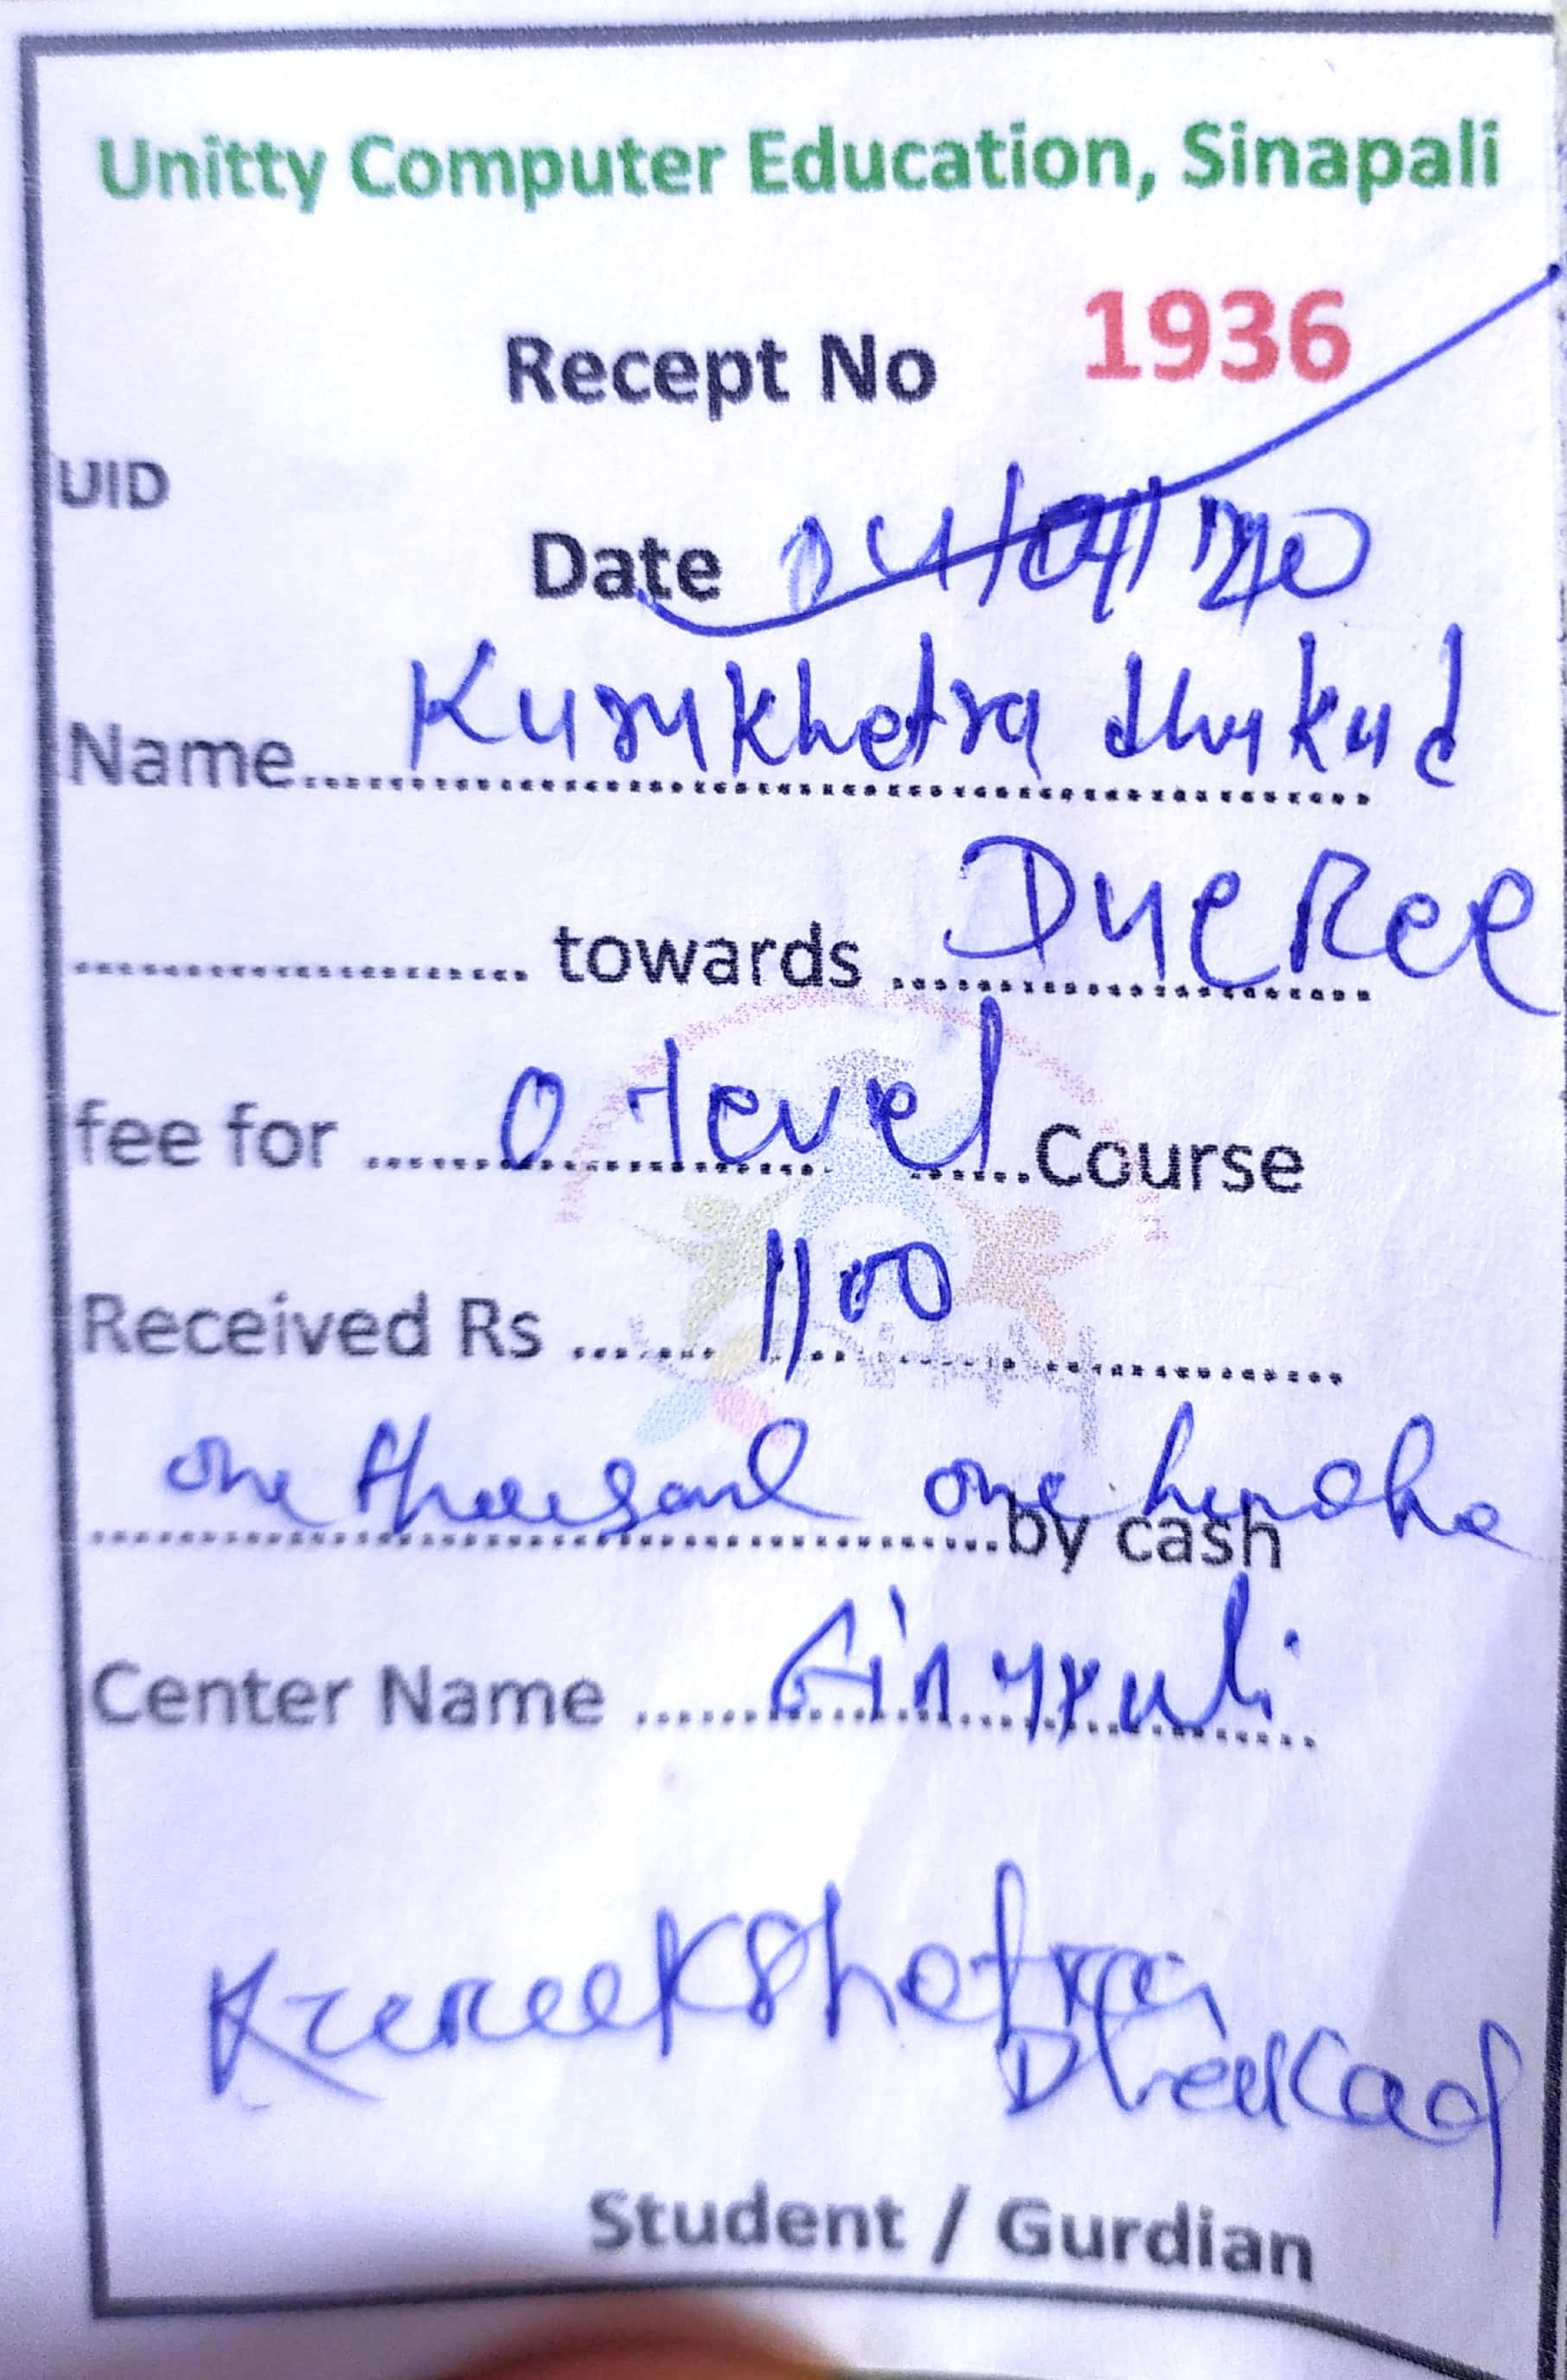 Unitty Computer Education, Sinapali
Recept No 1936
UID
Date
Name Kurukhetra dhukad
towards Due Ree
fee for O level Course
Received Rs 1100
one thousand one
by cash
Center Name Sinapali
Kurukshetra
Dhukad
Student / Gurdian